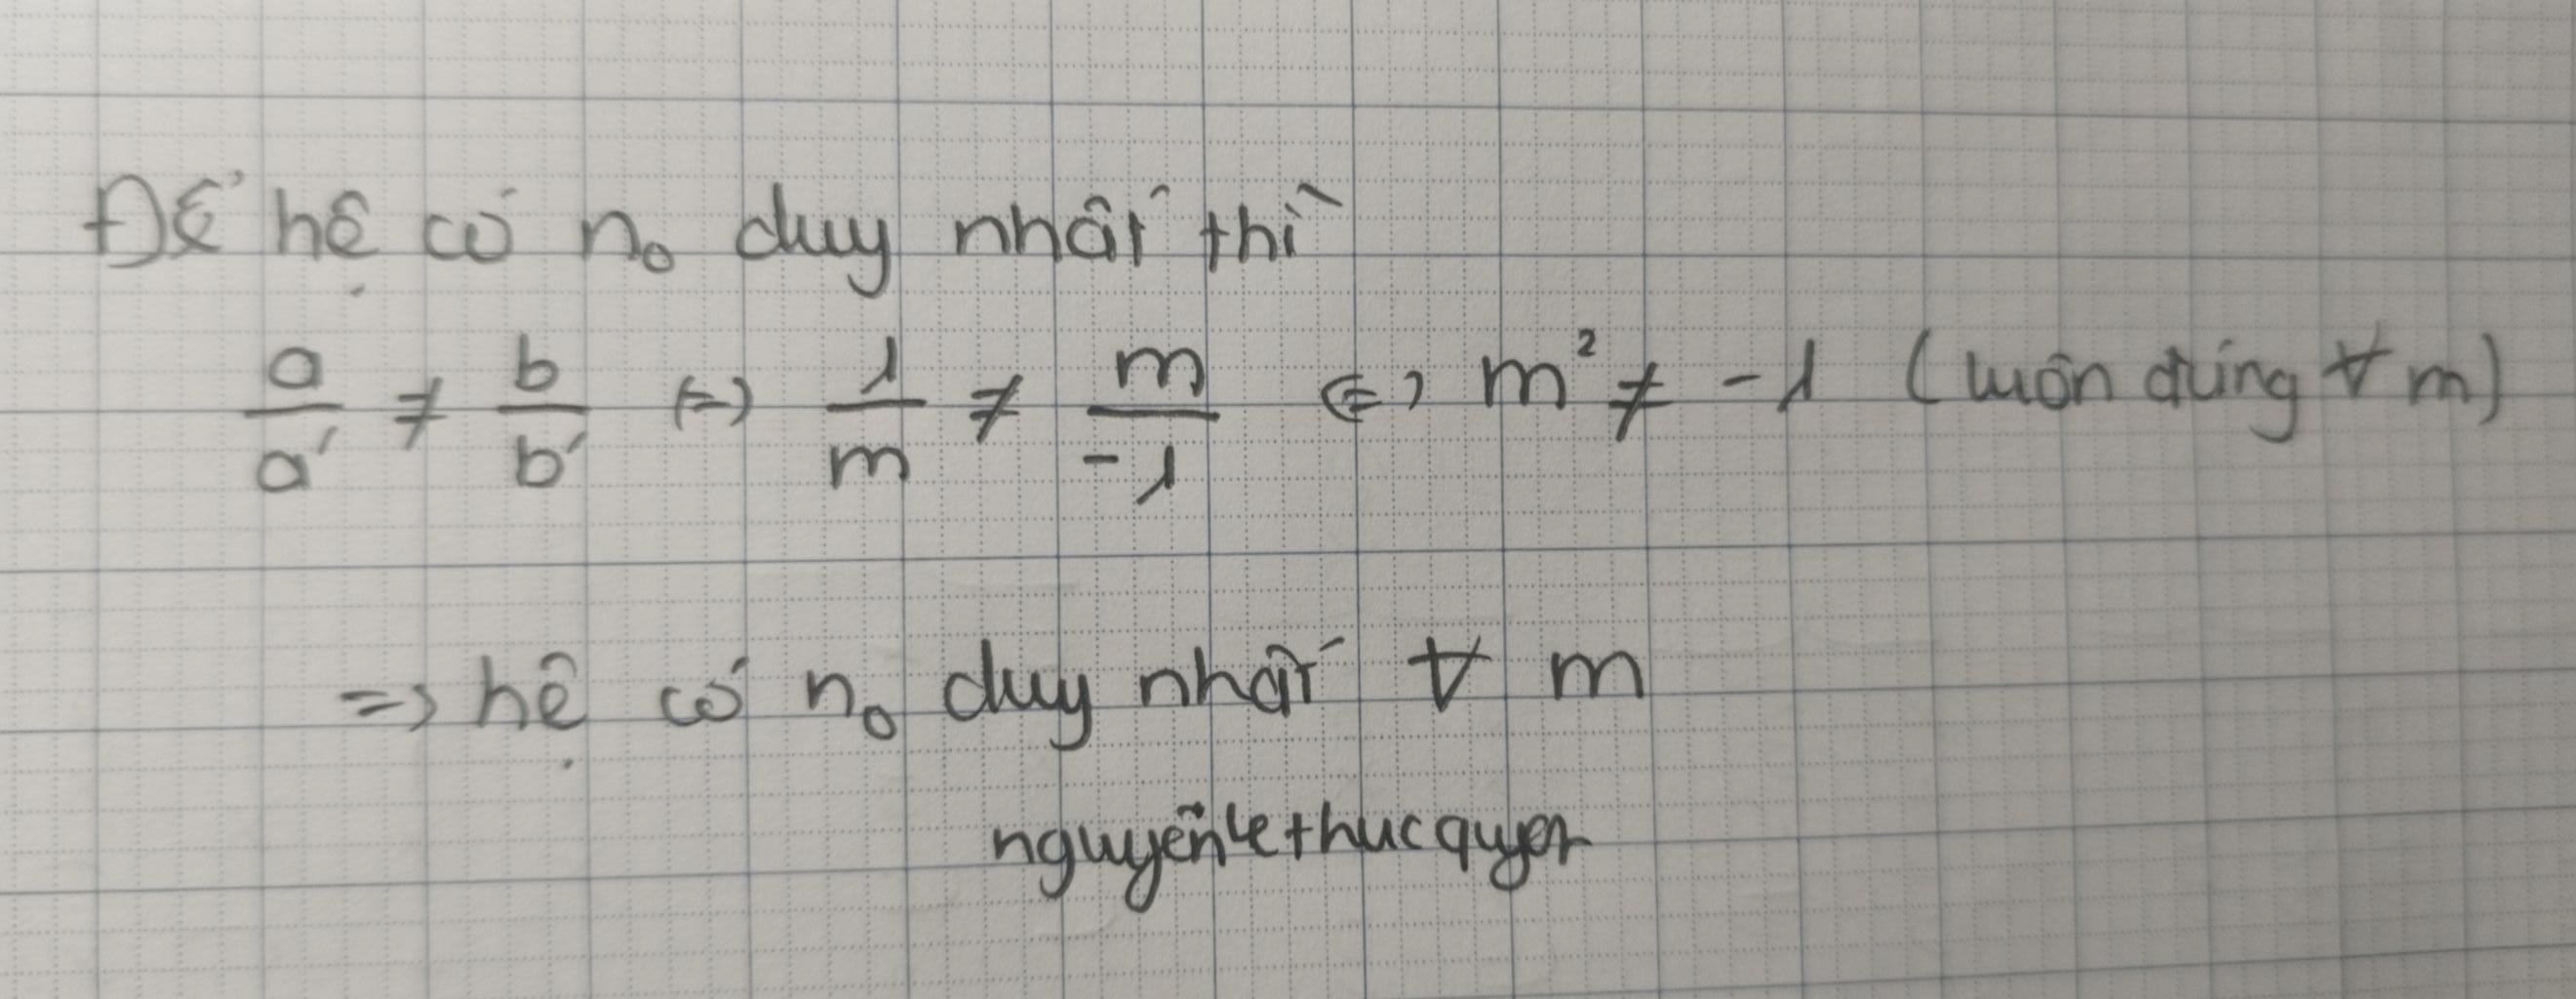 Để hệ có n₀ duy nhất thì
a/a' ≠ b/b' (=) 1/m ≠ m/-1 (=) m² ≠ -1 (luôn đúng ∀ m)
=> hệ có n₀ duy nhất ∀ m
nguyễn le thuc quyen